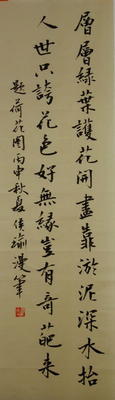 層層緑葉護花開盡靠淤泥深水抬
人世只誇花色好無緣豈有奇葩来
題荷花图丙申秋夏侯瑜漫筆